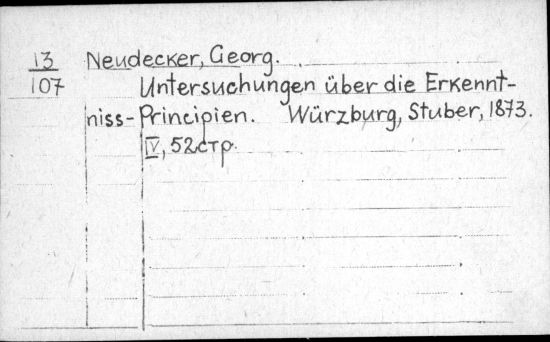 13 Neudecker, Georg.
107 Untersuchungen über die Erkennt-
niss-Principien. Würzburg, Stuber, 1873.
IV, 52 стр.